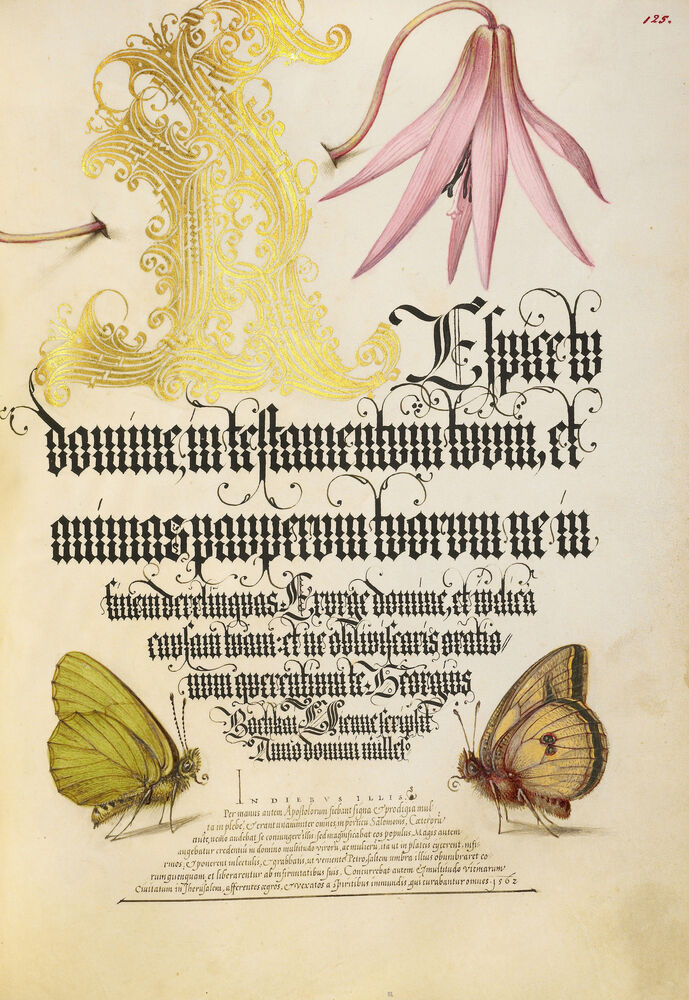 125.
Espice tu
domine, in testamentum tuum, et
animas pauperum tuorum ne in
finem derelinquas. Exurge domine, et iudica
causam tuam: et ne obliviscaris oratio//
num querentium te. Georgius
Bochkai Ehienne scripsit
Anno domini milles.
IN DIEBVS ILLIS.
Per manus autem Apostolorum fiebant signa & prodigia mul
ta in plebe, & erant unanimiter omnes, in porticu Salomonis, Cæteroru
aute, nemo audebat se coniungere illis: sed magnificabat eos populus. Magis autem
augebatur credentiu in domino multitudo virorũ, ac mulierũ, ita ut in plateas eijcerent, infir
mos, & ponerent in lectulis, & grabbatis, ut veniente Petro, saltem umbra illius obumbraret eo
rum quenquam, et liberarentur ab infirmitatibus suis. Concurrebat autem & multitudo vicinarum
Civitatum in Jherusalem, afferentes ægros, & vexatos a spiritibus immundis, qui curabantur omnes. 1562